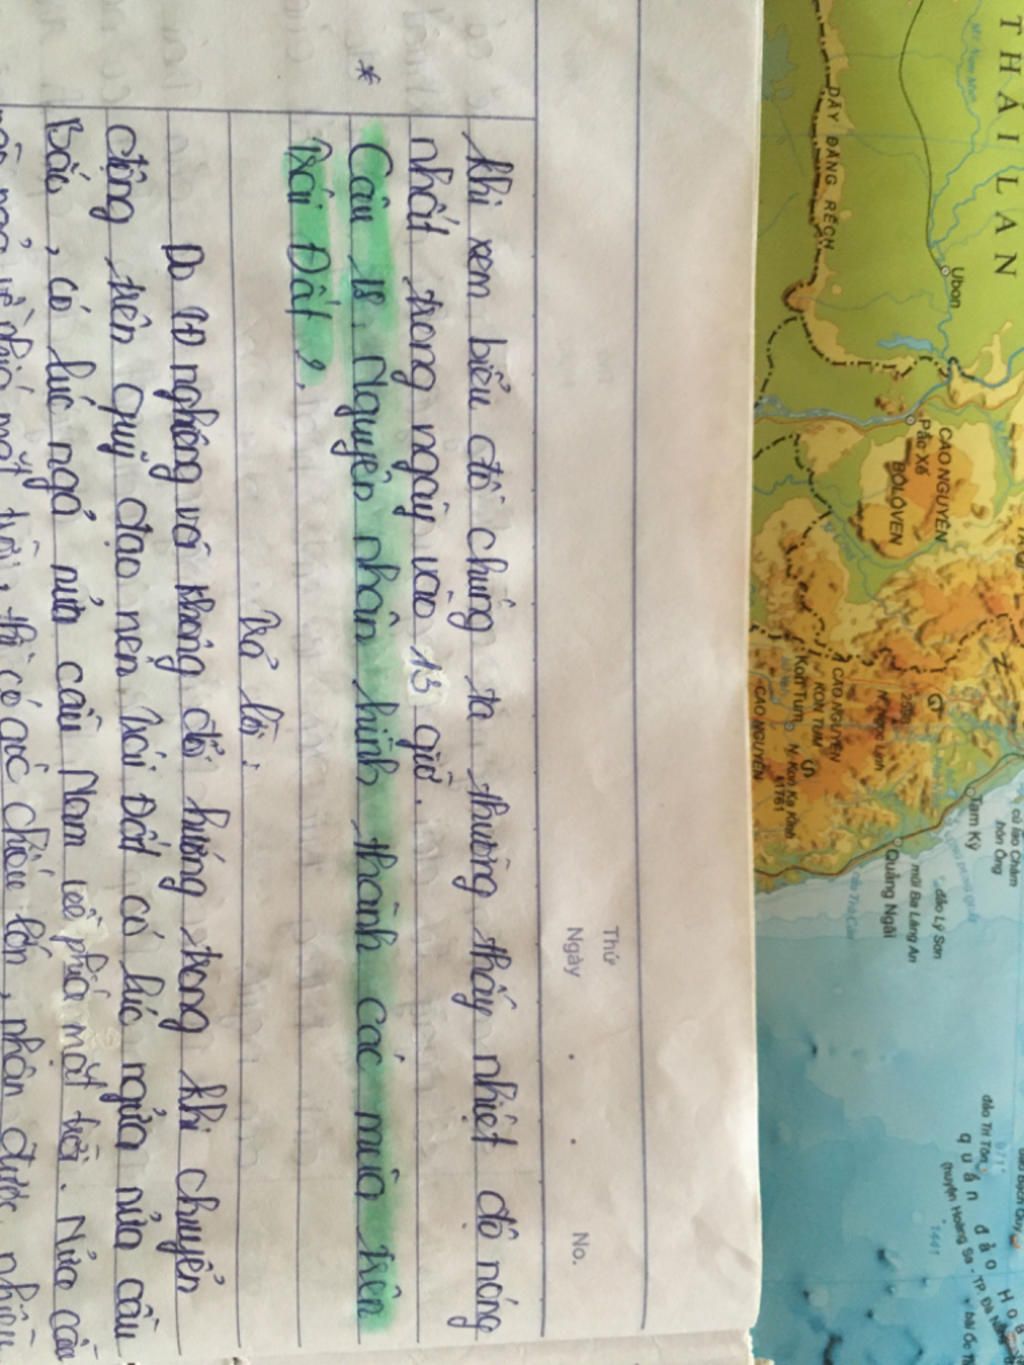 Thứ
Ngày . . No.
khi xem biểu đồ chúng ta thường thấy nhiệt độ nóng
nhất trong ngày vào 13 giờ.
* Câu 18. Nguyên nhân hình thành các mùa trên
Trái Đất?
Trả lời:
Do độ nghiêng và không đổi hướng trong khi chuyển
động trên quỹ đạo nên Trái Đất có lúc ngửa nửa cầu
Bắc, có lúc ngả nửa cầu Nam về phía mặt trời. Nửa cầu
nào ngả về phía mặt trời, thì có góc chiếu lớn, nhận được nhiều
THÁI LAN
DÃY ĐĂNG RẾCH
Ubon
Pắc Xế
CAO NGUYÊN
BÔLÔVEN
Kon Tum
CAO NGUYÊN
KON TUM
N. Kon Ka Kinh
1761
CAO NGUYÊN
N. Ngọc Linh
2598
Tam Kỳ
Quảng Ngãi
mũi Ba Làng An
đảo Lý Sơn
cù lao Chàm
hòn Ông
đảo Tri Tôn
971
quần đảo Hoà
(huyện Hoàng Sa - TP. Đà Nẵng
1441